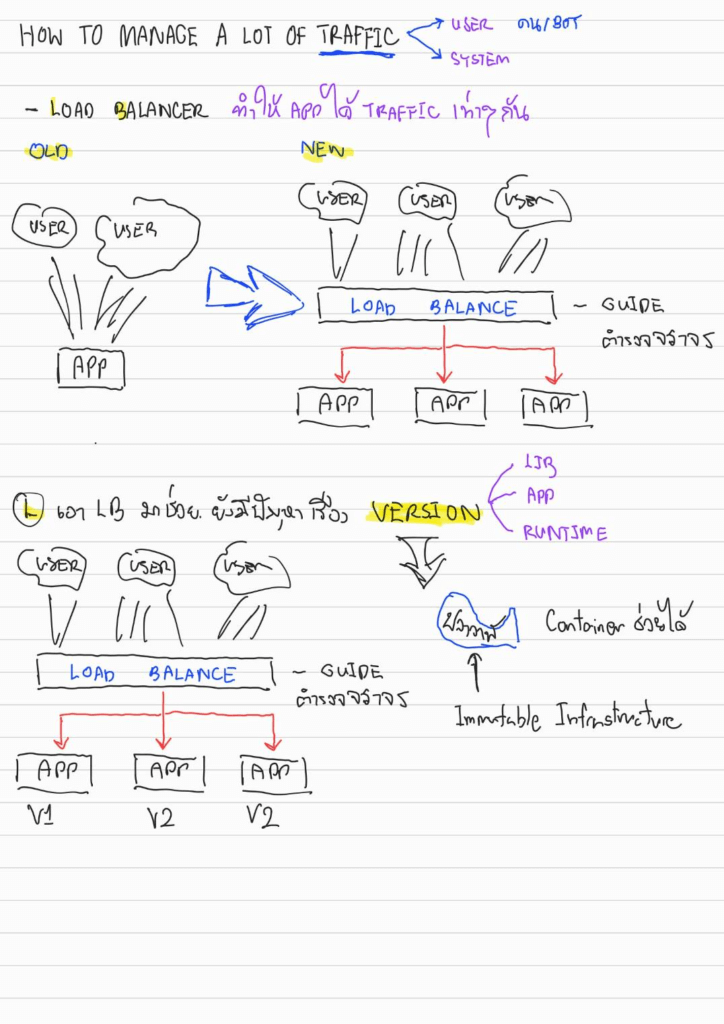 HOW TO MANAGE A LOT OF TRAFFIC
USER คน/BOT
SYSTEM
- LOAD BALANCER ทำให้ APP ได้ TRAFFIC เท่าๆ กัน
OLD
NEW
USER
USER
APP
USER
USER
USER
LOAD BALANCE
~ GUIDE
ตำรวจจราจร
APP
APP
APP
L เอา LB มาช่วย. ยังมีปัญหา เรื่อง VERSION
LIB
APP
RUNTIME
USER
USER
USER
LOAD BALANCE
~ GUIDE
ตำรวจจราจร
APP
APP
APP
V1
V2
V2
Container ช่วยได้
Immutable Infrastructure